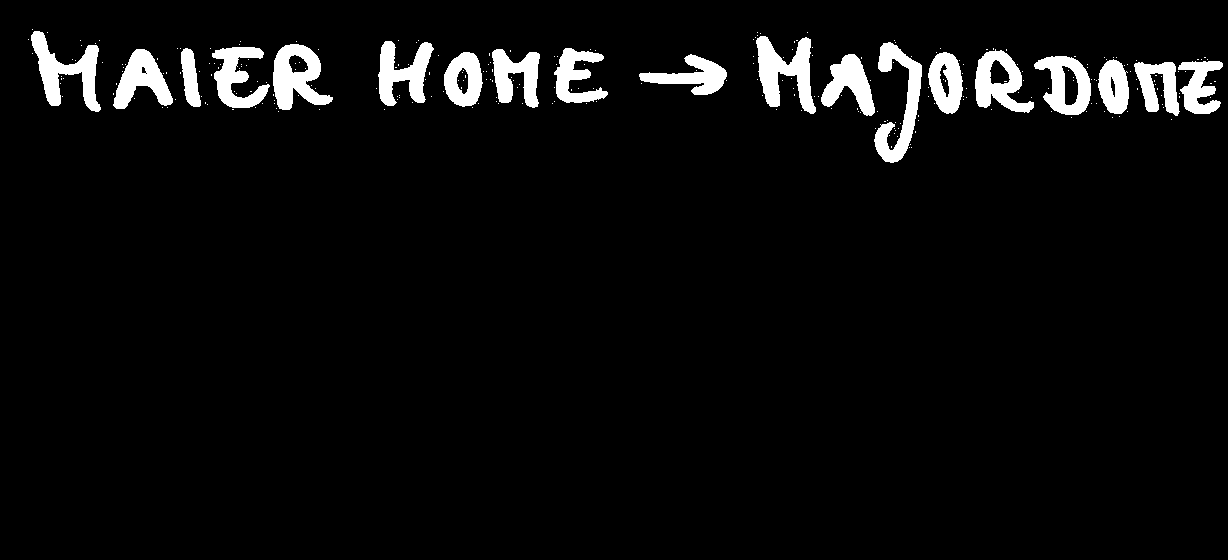 MAIER HOME → MAJORDOME